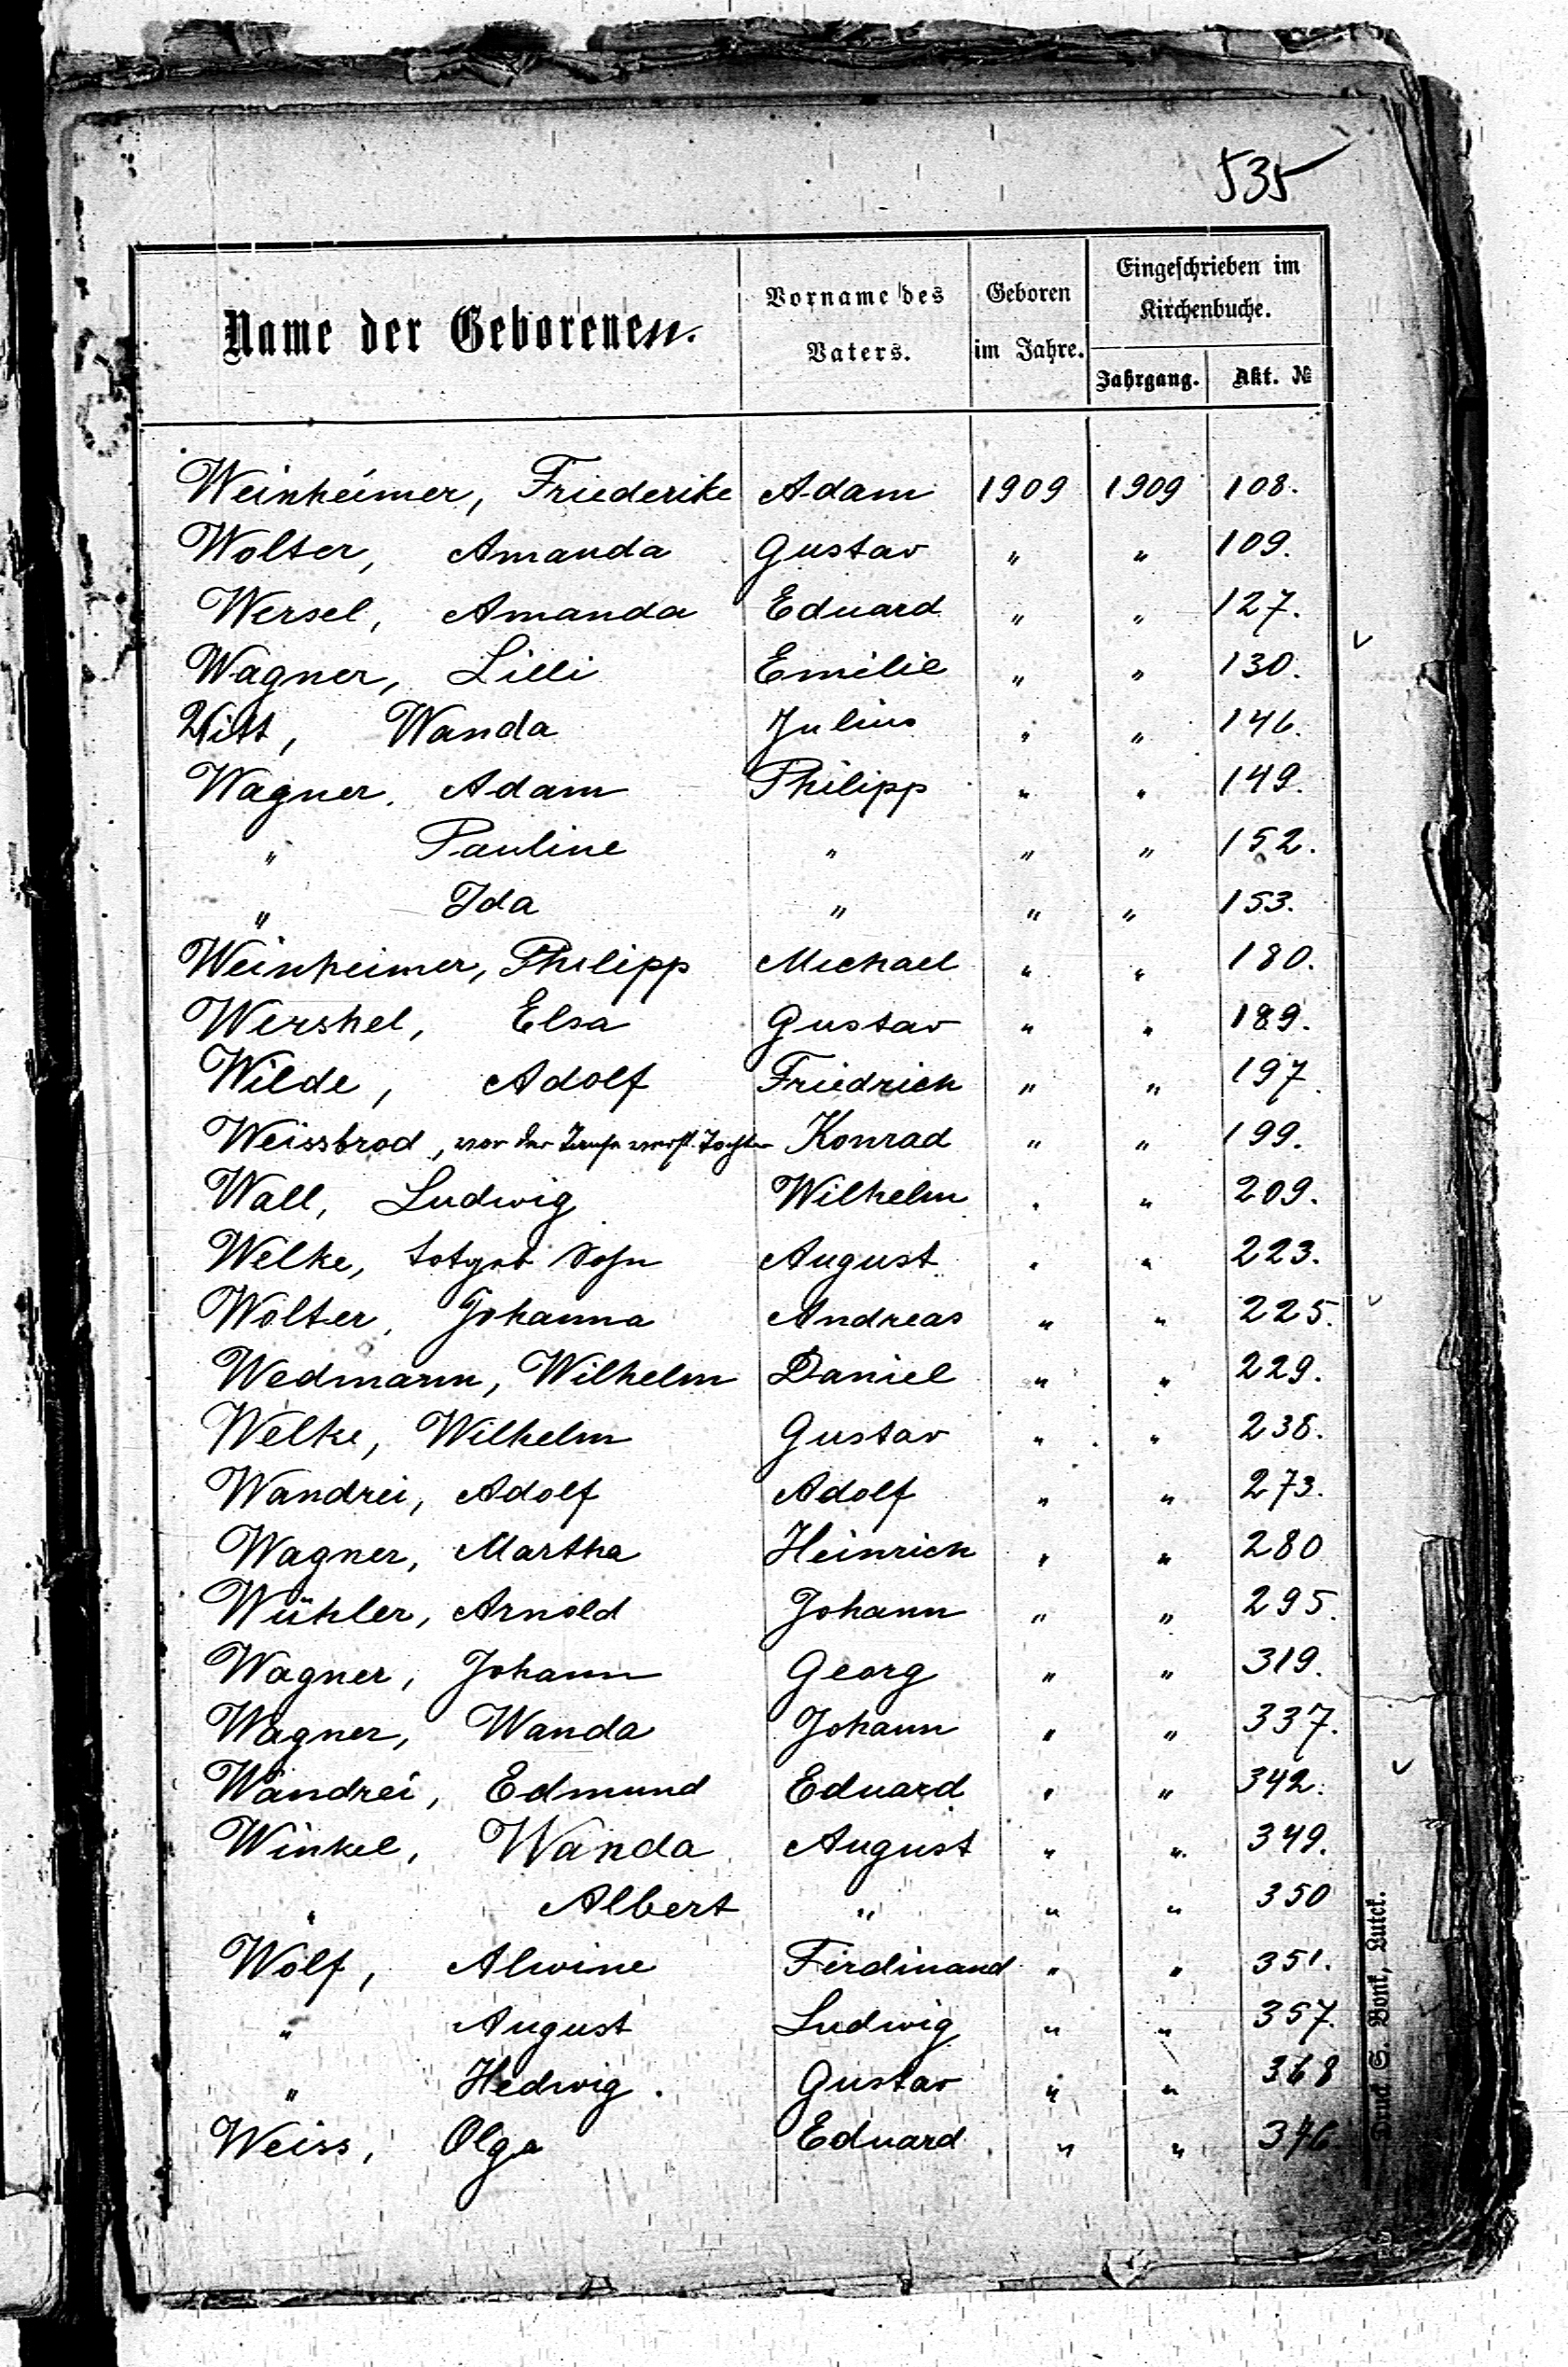 535
Name der Geborenen.
Vorname des Vaters.
Geboren im Jahre.
Eingeschrieben im Kirchenbuche.
Jahrgang. Akt. №
Weinheimer, Friederike Adam 1909 1909 108.
Wolter, Amanda Gustav " " 109.
Wersel, Amanda Eduard " " 127.
Wagner, Lilli Emilie " " 130.
Witt, Wanda Julius " " 146.
Wagner, Adam Philipp " " 149.
" Pauline " " " 152.
" Ida " " " 153.
Weinheimer, Philipp Michael " " 180.
Wershel, Elsa Gustav " " 189.
Wilde, Adolf Friedrich " " 197.
Weissbrod, vor der Taufe verst. Tochter Konrad " " 199.
Wall, Ludwig Wilhelm " " 209.
Welke, totgeb Sohn August " " 223.
Wolter, Johanna Andreas " " 225.
Wedmann, Wilhelm Daniel " " 229.
Welke, Wilhelm Gustav " "
Wandrei, Adolf Adolf " " 273.
Wagner, Martha Heinrich " " 280
Wühler, Arnold Johann " " 295.
Wagner, Johann Georg " " 319.
Wagner, Wanda Johann " " 337.
Wandrei, Edmund Eduard " " 342.
Winkel, Wanda August " " 349.
" Albert " " " 350
Wolf, Alwine Ferdinand " " 351.
" August Ludwig " " 357.
" Hedwig. Gustav " " 368
Weiss, Olga Eduard " "
Druck S. Bonk, Lutck.